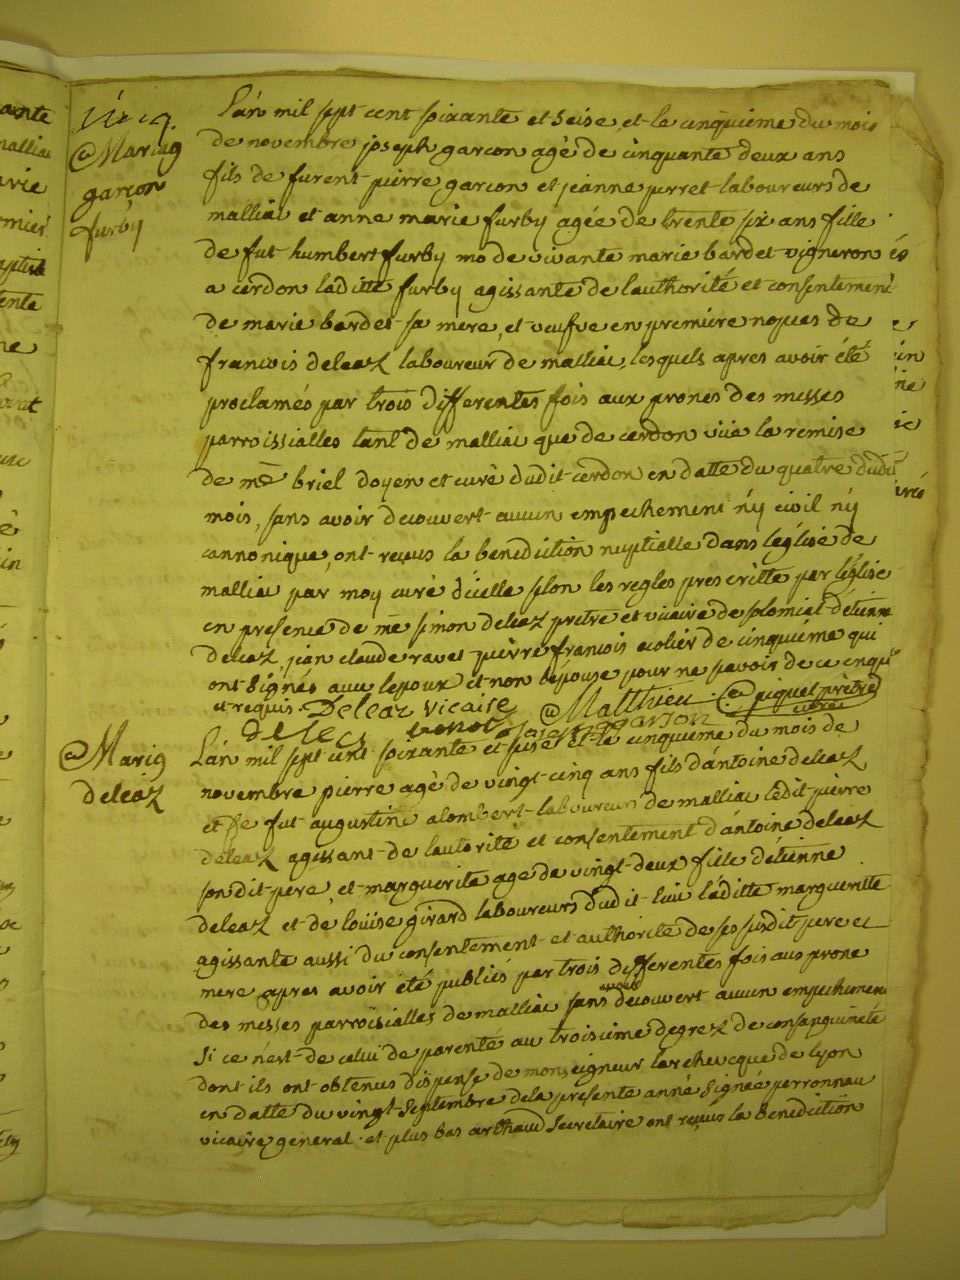 Mariag
garçon
furby
L'an mil sept cent soixante et seise et le cinquieme du mois
de novembre joseph garçon agè de cinquante deux ans
fils de furent pierre garçon et jeanne perret laboureurs de
malliai et anne marie furby agée de trente six ans fille
de fut humbert furby mo de vivante marie bardet vigneron és
a cerdon laditte furby agissante de lauthorité et consentement
de marie bardet sa mere, et veufve en premiere nopces de
francois deleaz laboureur de malliai, lesquels apres avoir été
proclamés par trois differentes fois aux prones des messes
parroissialles tant de malliai que de cerdon vüe la remise
de mre briel doyen et curè dudit cerdon en datte du quatre dudu
mois, sans avoir decouvert aucun empechement ny civil ny
cannonique, ont reçus la benediction nuptialle dans leglise de
malliai par moy curè d'icelle selon les regles prescritte par leglise
en presence de mre simon deleaz pretre et vicaire de solomiat d'etienne
deleaz, jean claude ravet pierre francois ecolier de cinquiéme qui
ont signés avec lepoux et non lépouse pour ne savoir de ce enquise
et requis. Deleaz vicaire Matthieu piquet prètre
curé
deleas
Mariag
deleaz
L'an mil sept cent soixante et seise et le cinquieme du mois de
novembre pierre agè de vingt-cinq ans fils d'antoine deleaz
et de fut augustine alombert laboureurs de malliai ledit pierre
deleaz agissant de lautorité et consentement d'antoine deleaz
son dit pere, et marguerite agé de vingt-deux fille d'etienne
deleaz et de loüise girard laboureurs dudit lieu laditte margueritte
agissante aussi du consentement et authorité de ses susdit pere et
mere apres avoir été publiés par trois differentes fois aus prone
des messes parroisialles de malliai sans avoir decouvert aucun empechement
si ce n'est de celui de parenté au troisieme degrez de consanguineté
dont ils ont obtenus dispense de monseigneur larchevecque de lyon
en datte du vingt septembre dela presente anné signée perronnau
vicaire general et plus bas arthaud secretaire ont reçus la benediction